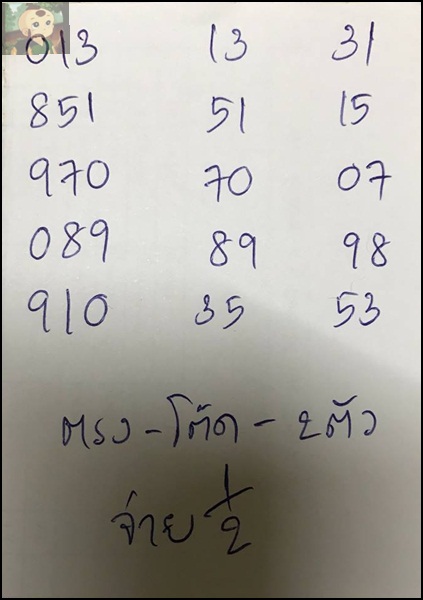 013 13 31
851 51 15
970 70 07
089 89 98
910 35 53
ตรง - โต๊ด - 2ตัว
จ่าย 1/2